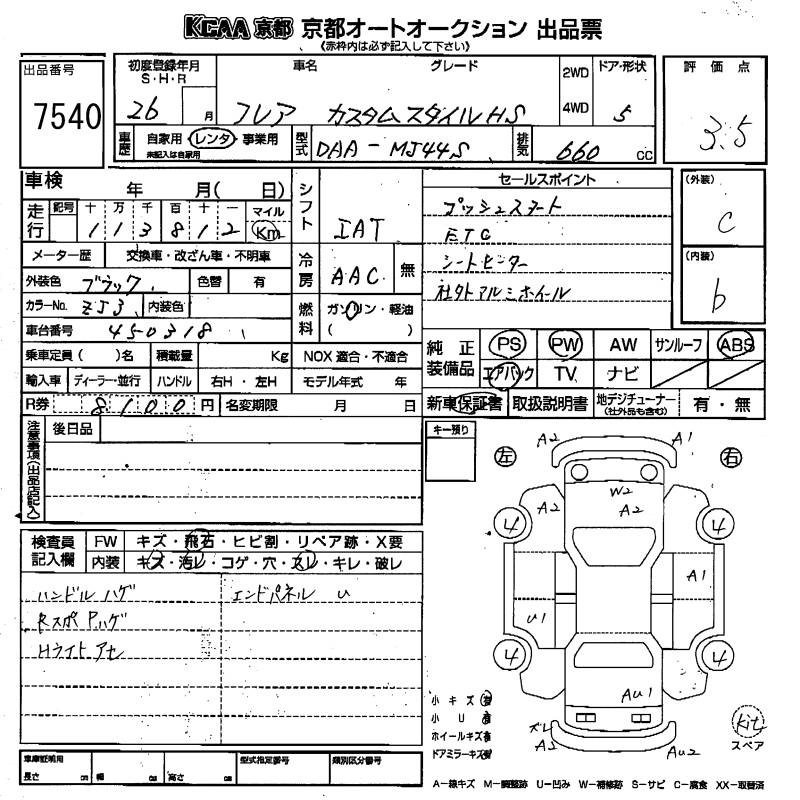 KCAA 京都 京都オートオークション 出品票
《赤枠内は必ず記入して下さい》
出品番号 7540
初度登録年月 S・H・R 26 月
車名 フレア
グレード カスタムスタイルHS
2WD 4WD
ドア・形状 5
評価点 3.5
車歴 自家用・レンタ・事業用
未記入は自家用
型式 DAA-MJ44S
排気 660 cc
車検 年 月( 日)
シフト IAT
走行 記号 十 万 千 百 十 一 マイル Km
1 1 3 8 1 2
メーター歴 交換車・改ざん車・不明車
冷房 AAC 無
外装色 ブラック 色替 有
カラーNo. ZJ3 内装色
燃料 ガソリン・軽油 ( )
車台番号 450318
乗車定員( )名 積載量 Kg NOX 適合・不適合
輸入車 ディーラー・並行 ハンドル 右H・左H モデル年式 年
R券 8100円 名変期限 月 日
セールスポイント
プッシュスタート
ETC
シートヒーター
社外アルミホイール
(外装) C
(内装) b
純正装備品 PS PW AW サンルーフ ABS
エアバック TV ナビ
新車保証書 取扱説明書 地デジチューナー (社外品も含む) 有・無
注意事項(出品店記入) 後日品
キー預り
左 右
A2 A1
A2 W2 A2 A2
4 4
A1
U1
4 4
AU1
ズレ A2 AU2
検査員記入欄 FW キズ・飛石・ヒビ割・リペア跡・X要
内装 キズ・汚レ・コゲ・穴・スレ・キレ・破レ
ハンドルハゲ エンドパネル U
RスポPハゲ
Hライトアセ
小キズ有
小U有
ホイールキズ有
ドアミラーキズ有
kit
スペア
車庫証明用 長さ cm 幅 cm 高さ cm 型式指定番号 類別区分番号
A-線キズ M-調整跡 U-凹み W-補修跡 S-サビ C-腐食 XX-取替済